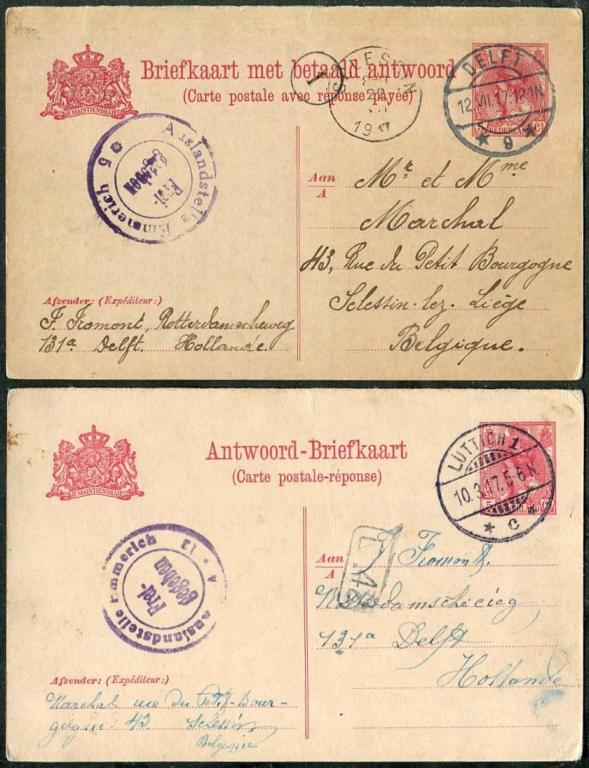 Briefkaart met betaald antwoord
(Carte postale avec réponse payée)
DELFT
12.VII.17.12 1N
9
1
Auslandstelle Emmerich
Frei-
gegeben
5
Aan
A
Mr et Mme
Marchal
43, Rue du Petit Bourgogne
Selessin-lez-Liège
Belgique.
Afzender: (Expéditeur:)
F. Fromont, Rotterdamscheweg
131a Delft. Hollande.
JE MAINTIENDRAI
Antwoord-Briefkaart
(Carte postale-réponse)
LÜTTICH 1
10.3.17.5-6.N
C
Auslandstelle Emmerich
Frei-
gegeben
Aan
A
Fromont.
131a Delft
Hollande
Afzender: (Expéditeur:)
Marchal rue du Petit-Bour-
gogne 43 Selessin
Belgique